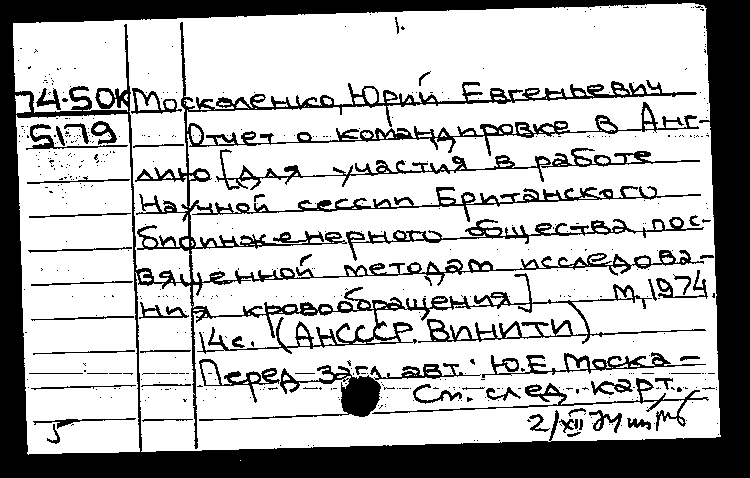 1.
74-50К Москаленко, Юрий Евгеньевич.
5179 Отчет о командировке в Анг-
лию [для участия в работе
Научной сессии Британского
биоинженерного общества, пос-
вященной методам исследова-
ния кровообращения]. М., 1974.
14с. (АНСССР. ВИНИТИ).
Перед загл. авт.: Ю.Е. Моска-
См. след. карт.
5 2/XII 74